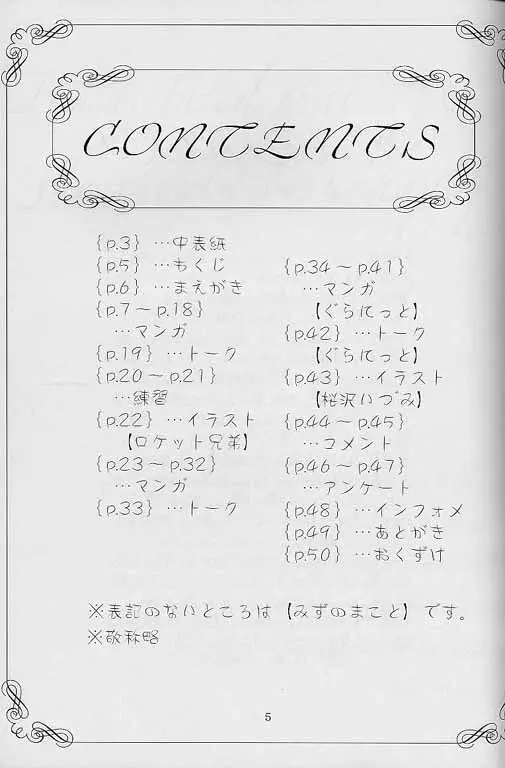 CONTENTS
{p.3} …中表紙
{p.5} …もくじ
{p.6} …まえがき
{p.7～p.18}
…マンガ
{p.19} …トーク
{p.20～p.21}
…練習
{p.22} …イラスト
【ロケット兄弟】
{p.23～p.32}
…マンガ
{p.33} …トーク
{p.34～p.41}
…マンガ
【ぐらにっと】
{p.42} …トーク
【ぐらにっと】
{p.43} …イラスト
【桜沢いづみ】
{p.44～p.45}
…コメント
{p.46～p.47}
…アンケート
{p.48} …インフォメ
{p.49} …あとがき
{p.50} …おくづけ
※表記のないところは【みずのまこと】です。
※敬称略
5